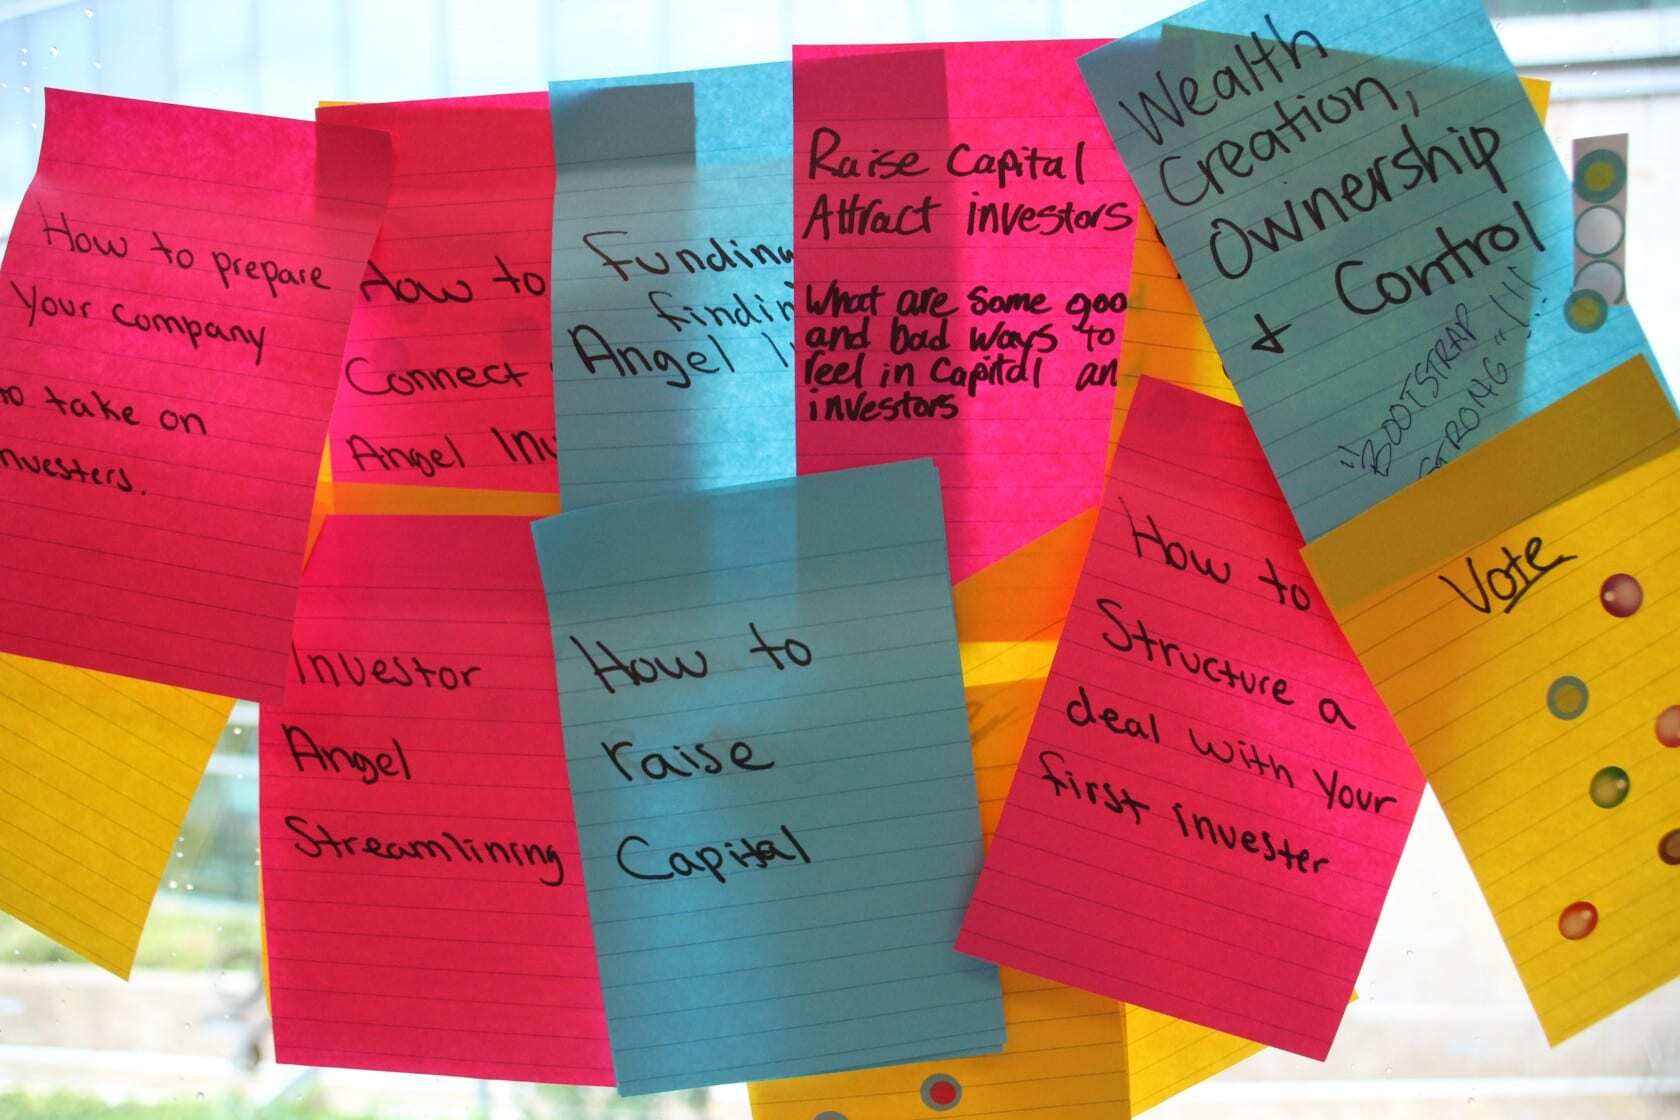 How to prepare
your company
to take on
investers.
How to
Connect
Angel
Funding
finding
Angel
Raise Capital
Attract investors
What are some good
and bad ways to
reel in Capital an
investors
Wealth
Creation,
Ownership
+ Control
"BOOTSTRAP
STRONG"!!!
Investor
Angel
Streamlining
How to
raise
Capital
How to
Structure a
deal with your
first invester
Vote